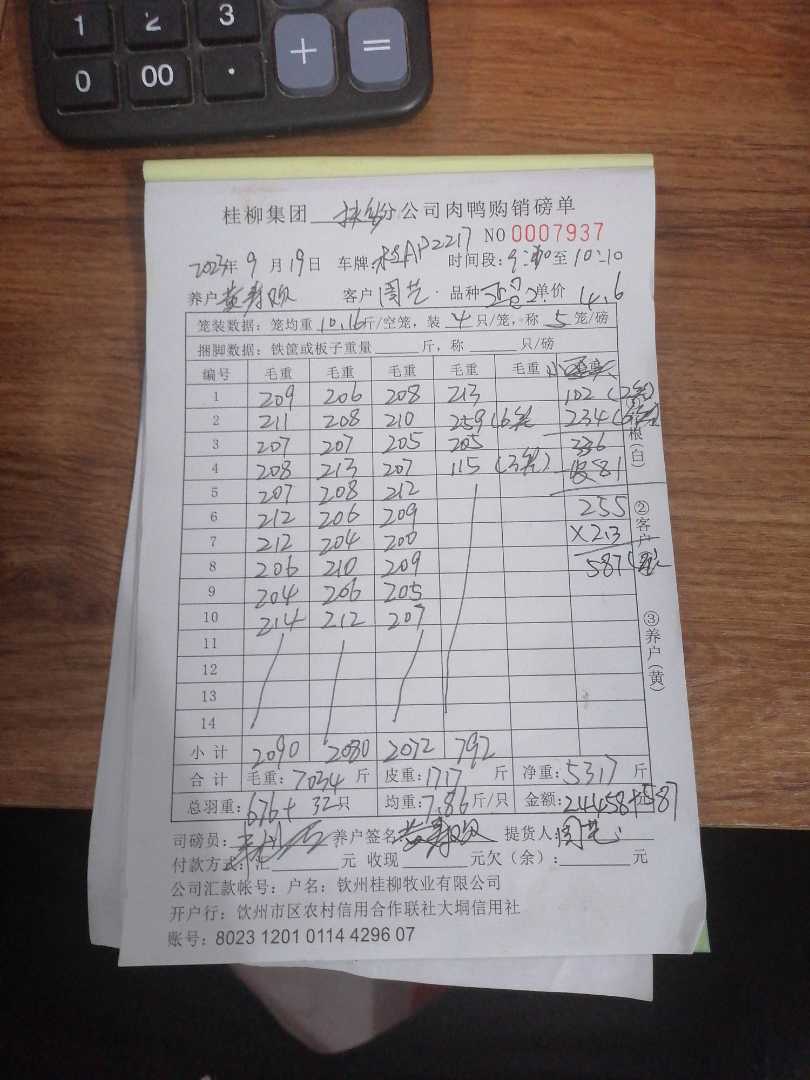 1 2 3 + =
0 00 ·
桂柳集团 分公司肉鸭购销磅单
NO 0007937
2023年 9 月 19 日 车牌: AP2217 时间段: 至 10:10
养户 黄 欢 客户 周艺 · 品种 单价 4.6
笼装数据: 笼均重 10.16 斤/空笼, 装 4 只/笼, 称 5 笼/磅
捆脚数据: 铁筐或板子重量 斤, 称 只/磅
编号 毛重 毛重 毛重 毛重 毛重
1 209 206 208 213 102 (2笼)
2 211 208 210 259 (6笼 234
3 207 207 205 205 336
4 208 213 207 115 (3笼) 81
5 207 208 212
6 212 206 209 255
7 212 204 200 ×2.3
8 206 210 209 587
9 204 206 205
10 214 212 207
11
12
13
14
小计 2090 2080 2072 792
合计 毛重: 7034 斤 皮重: 1717 斤 净重: 5317 斤
总羽重: 676+32只 均重: 7.86 斤/只 金额: 24458+587
司磅员: 养户签名 黄 欢 提货人: 周艺
付款方式: 汇 元 收现 元欠(余): 元
公司汇款帐号: 户名: 钦州桂柳牧业有限公司
开户行: 钦州市区农村信用合作联社大垌信用社
账号: 8023 1201 0114 4296 07
根(白)
②客户
③养户(黄)